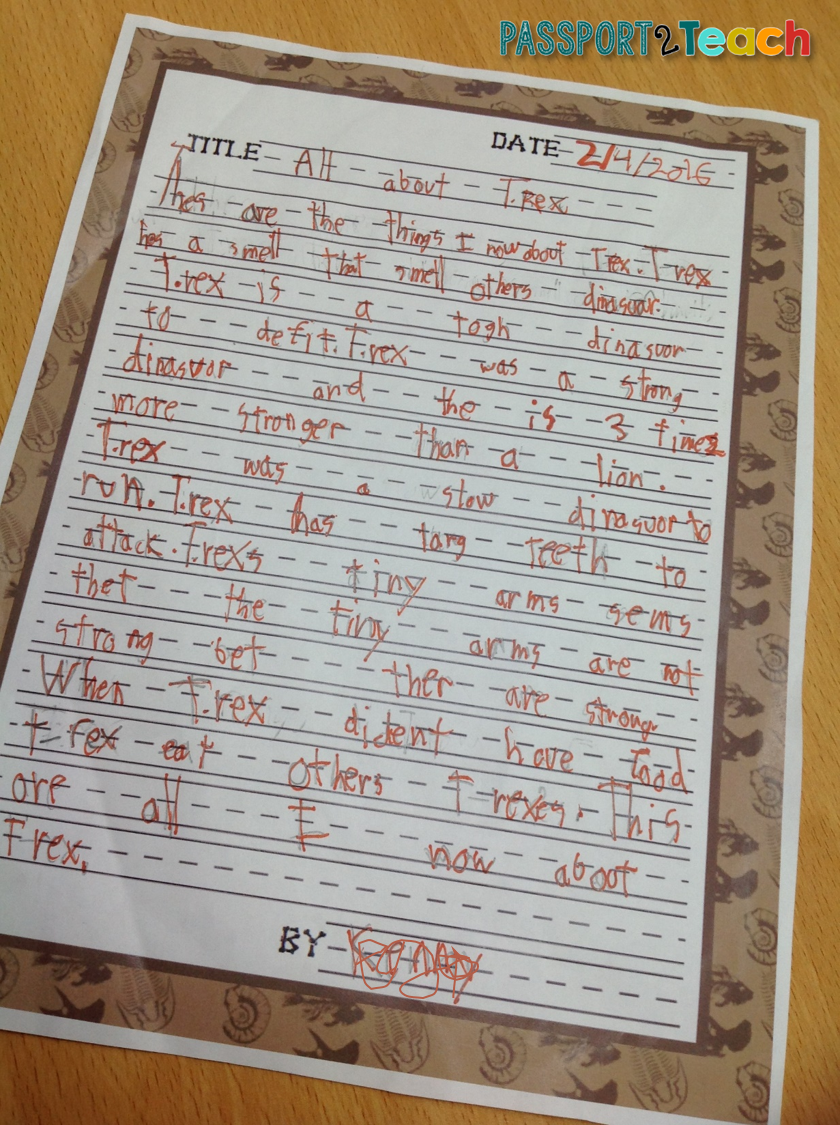 PASSPORT2Teach
TITLE All about T.Rex
DATE 2/4/2016
Thes are the things I now about T.rex. T rex
hes a smell that smell others dinasuar.
T.rex is a togh dinasuor
to defit. T.rex was a strong
dinasuor and the is 3 times
more stronger than a lion.
T.rex was a slow dinasuor to
run. T.rex has targ teeth to
attack. T.rexs tiny arms sems
thet the tiny arms are not
strong bet ther are strong.
When T.rex dident have food
t-rex eat others T rexes. This
are all I now aboot
T rex.
BY